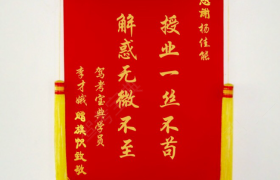 感谢杨佳能
授业一丝不苟
解惑无微不至
驾考宝典学员
李才娥赠旗致敬